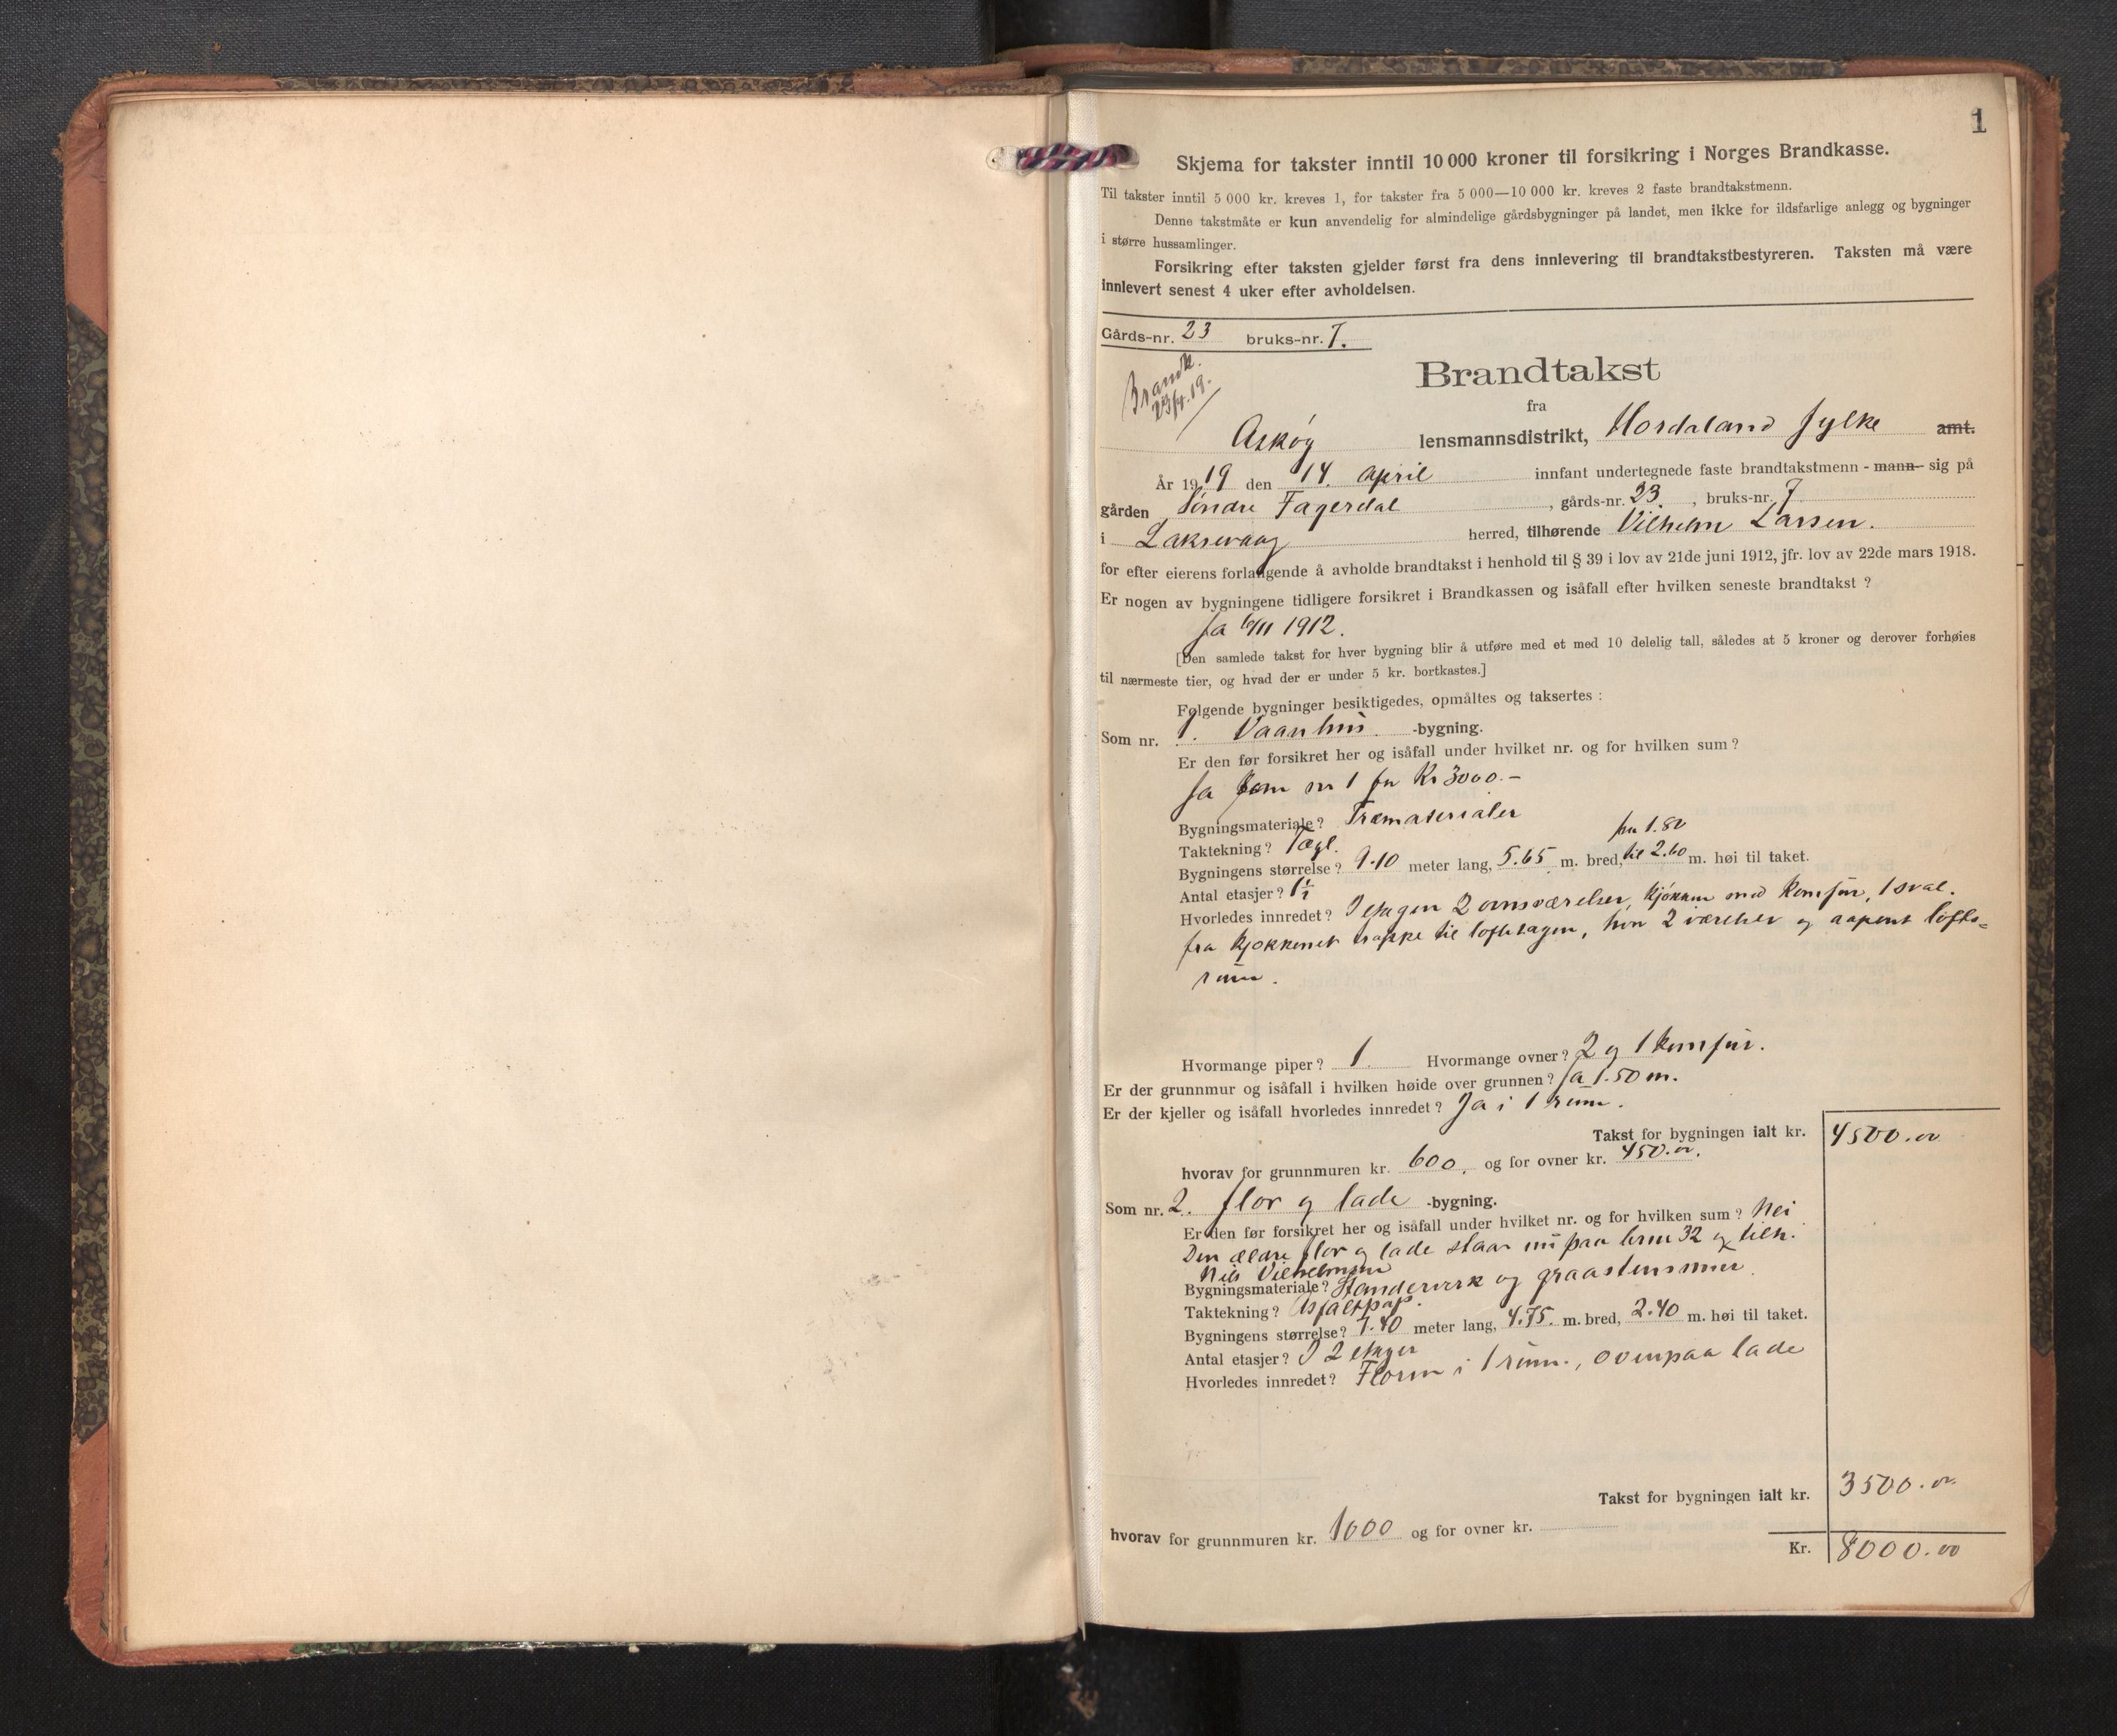 1
Skjema for takster inntil 10 000 kroner til forsikring i Norges Brandkasse.
Til takster inntil 5 000 kr. kreves 1, for takster fra 5 000—10 000 kr. kreves 2 faste brandtakstmenn.
Denne takstmåte er kun anvendelig for almindelige gårdsbygninger på landet, men ikke for ildsfarlige anlegg og bygninger
i større hussamlinger.
Forsikring efter taksten gjelder først fra dens innlevering til brandtakstbestyreren. Taksten må være
innlevert senest 4 uker efter avholdelsen.
Gårds-nr. 23 bruks-nr. 7.
Brandk.
23/4.19.
Brandtakst
fra
Askøy lensmannsdistrikt, Hordaland fylke amt.
År 1919 den 14. april innfant undertegnede faste brandtakstmenn - mann- sig på
gården Søndre Fagerdal, gårds-nr. 23, bruks-nr. 7
i Laksevaag herred, tilhørende Vilhelm Larsen.
for efter eierens forlangende å avholde brandtakst i henhold til § 39 i lov av 21de juni 1912, jfr. lov av 22de mars 1918.
Er nogen av bygningene tidligere forsikret i Brandkassen og isåfall efter hvilken seneste brandtakst ?
Ja 6/11 1912.
[Den samlede takst for hver bygning blir å utføre med et med 10 delelig tall, således at 5 kroner og derover forhøies
til nærmeste tier, og hvad der er under 5 kr. bortkastes.]
Følgende bygninger besiktigedes, opmåltes og taksertes :
Som nr. 1. Vaanhus -bygning.
Er den før forsikret her og isåfall under hvilket nr. og for hvilken sum ?
Ja som nr 1 for Kr 3000.-
Bygningsmateriale ? Træmaterialer
Taktekning ? Tægl.
fra 1.80
Bygningens størrelse ? 9.10 meter lang, 5.65 m. bred, til 2.60 m. høi til taket.
Antal etasjer ? 1½
Hvorledes innredet ? I etagen 2 ovnsværelser, kjøkken med komfur, 1 sval.
fra kjøkkenet trappe til loftetagen, hvor 2 værelser og aapent lofts-
rum.
Hvormange piper ? 1 Hvormange ovner ? 2 og 1 komfur.
Er der grunnmur og isåfall i hvilken høide over grunnen ? Ja 1.50 m.
Er der kjeller og isåfall hvorledes innredet ? Ja i 1 rum.
Takst for bygningen ialt kr. 4500.00
hvorav for grunnmuren kr. 600. og for ovner kr. 450.00.
Som nr. 2. flor og lade -bygning.
Er den før forsikret her og isåfall under hvilket nr. og for hvilken sum ? Nei
Den ældre flor og lade staar nu paa brnr 32 og tilh.
Nils Vilhelmsen
Bygningsmateriale ? Standerverk og graastensmur
Taktekning ? Asfaltpap.
Bygningens størrelse ? 7.40 meter lang, 4.75. m. bred, 2.40 m. høi til taket.
Antal etasjer ? I 2 etager
Hvorledes innredet ? Floren i 1 rum., ovenpaa lade
Takst for bygningen ialt kr. 3500.00
hvorav for grunnmuren kr. 1000 og for ovner kr.
Kr. 8000.00